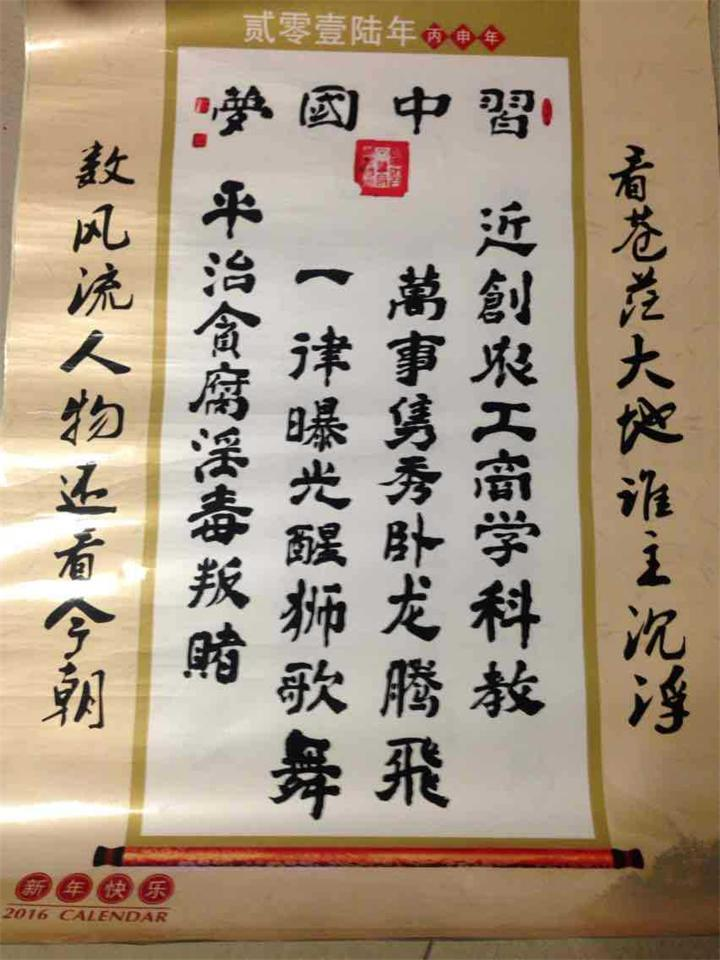 贰零壹陆年 丙申年
習中國夢
近創农工商学科教
萬事隽秀卧龙腾飛
一律曝光醒狮歌舞
平治貪腐淫毒叛賭
看苍茫大地谁主沉浮
数风流人物还看今朝
新年快乐
2016 CALENDAR